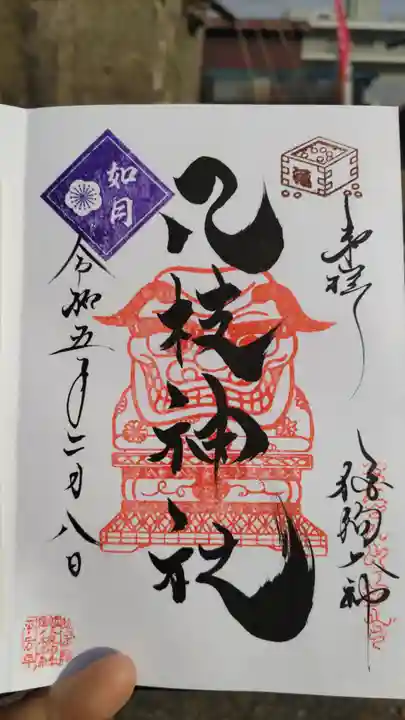 奉拝
狛狗大神
八枝神社
如月
令和五年二月八日
福